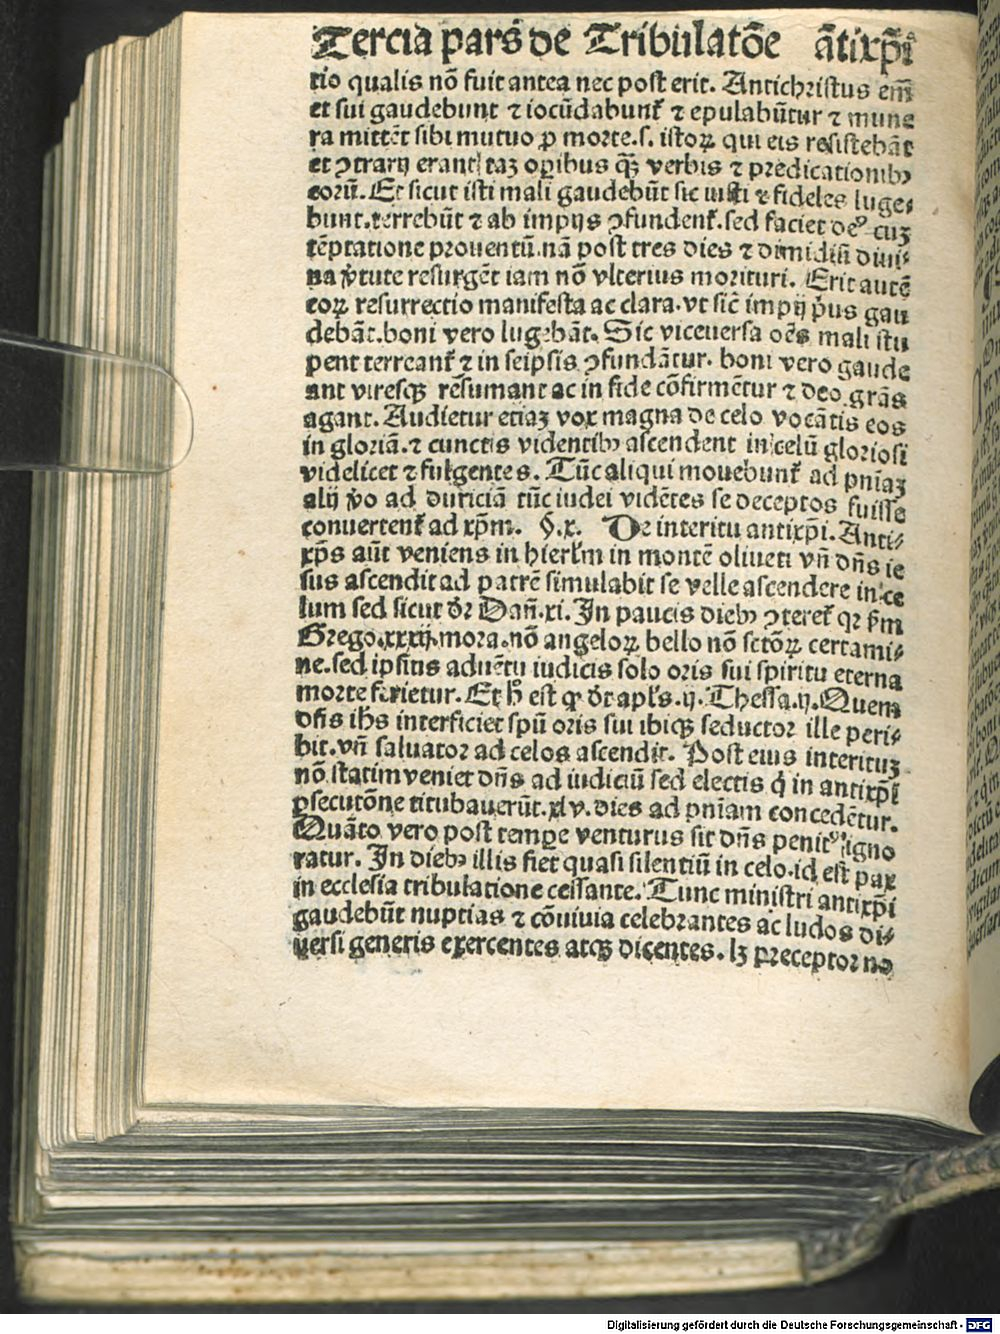 Tercia pars de Tribulatõe ãtixp̃i
tio qualis nõ fuit antea nec post erit. Antichristus em̃
et sui gaudebunt ⁊ iocũdabunt᷑ ⁊ epulabũtur ⁊ mune
ra mittẽt sibi mutuo ꝓ morte.s. istoꝝ qui eis resistebãt
et ꝯtrarij erant taꝫ oꝑibus qᷓꝫ verbis ⁊ predicationibꝰ
eorũ. Et sicut isti mali gaudebũt sic iusti ⁊ fideles luge⸗
bunt. terrebũt ⁊ ab impijs ꝯfundent᷑. sed faciet deꝰ cuꝫ
tẽptatione prouentũ. nã post tres dies ⁊ dimidiũ diui⸗
na v̾tute resurgẽt iam nõ vlterius morituri. Erit autẽ
eoꝝ resurrectio manifesta ac clara. vt sic̃ impij p̾us gau
debãt. boni vero lugebãt. Sic viceuersa oẽs mali stu
pent terreant᷑ ⁊ in seipsis ꝯfundãtur. boni vero gaude
ant viresqꝫ resumant ac in fide cõfirmẽtur ⁊ deo grãs
agant. Audietur etiaꝫ vox magna de celo vocãtis eos
in gloriã. ⁊ cunctis videntibꝰ ascendent in celũ gloriosi
videlicet ⁊ fulgentes. Tũc aliqui mouebunt᷑ ad pniãꝫ
alij v̾o ad duriciã tũc iudei vidẽtes se deceptos fuisse
conuertent᷑ ad xp̃m. §.x. De interitu antixp̃i. Anti⸗
xp̃s aũt veniens in hierl̃m in montẽ oliueti vñ dñs ie
sus ascendit ad patrẽ simulabit se velle ascendere in ce
lum sed sicut dr̃ Dañ.xi. In paucis diebꝰ ꝯteret᷑ qꝛ s̃m
Grego.xxxij.mora. nõ angeloꝝ bello nõ sctõꝝ certami⸗
ne. sed ipsius aduẽtu iudicis solo oris sui spiritu eterna
morte ferietur. Et h̾ est qď dt̾ apl̃s.ij.Thessa.ij. Quem
dñs ih̃s interficiet spũ oris sui ibiqꝫ seductor ille peri⸗
bit. vñ saluator ad celos ascendit. Post eius interituꝫ
nõ statim veniet dñs ad iudiciũ sed electis q̾ in antixp̃i
ꝑsecutõne titubauerũt. xlv. dies ad pniam concedẽtur.
Quãto vero post tempꝰe venturus sit dñs penitꝰ igno
ratur. In diebꝰ illis fiet quasi silentiũ in celo. id est pax
in ecclesia tribulatione cessante. Tunc ministri antixp̃i
gaudebũt nuptias ⁊ cõuiuia celebrantes ac ludos di⸗
uersi generis exercentes atqꝫ dicentes. lꝫ preceptor no
Digitalisierung gefördert durch die Deutsche Forschungsgemeinschaft - DFG